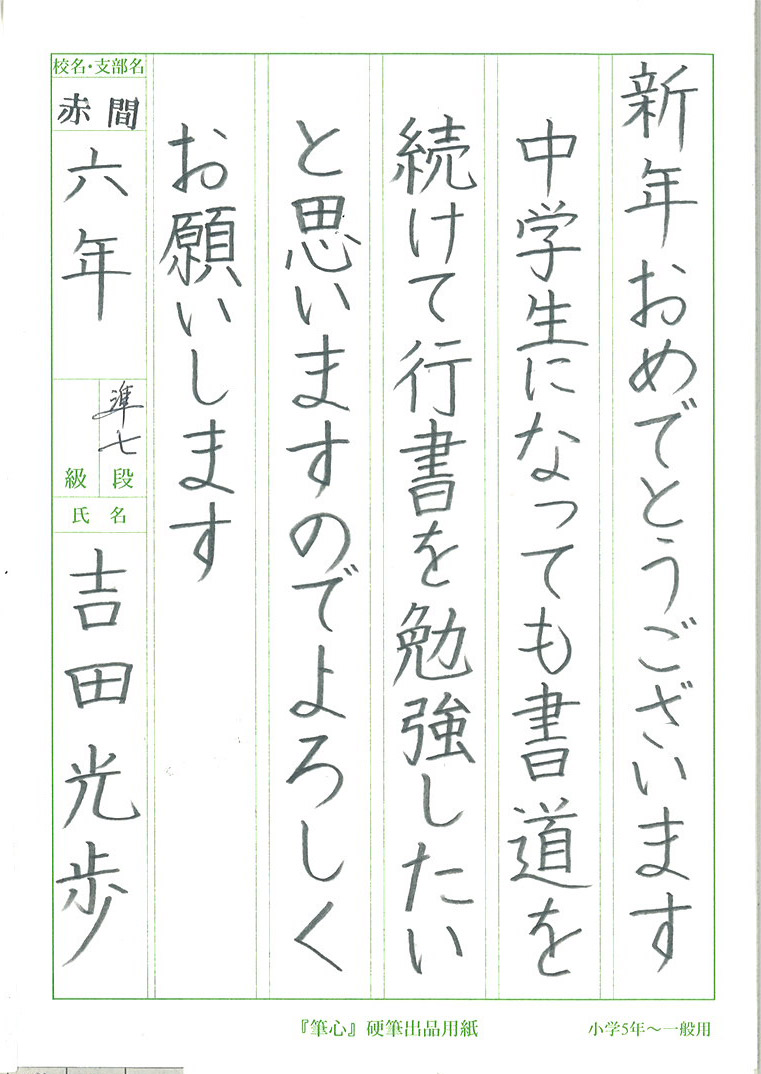 新年おめでとうございます
中学生になっても書道を
続けて行書を勉強したい
と思いますのでよろしく
お願いします
校名・支部名
赤間
六年
準七
級 段
氏名
吉田光歩
『筆心』硬筆出品用紙
小学5年〜一般用